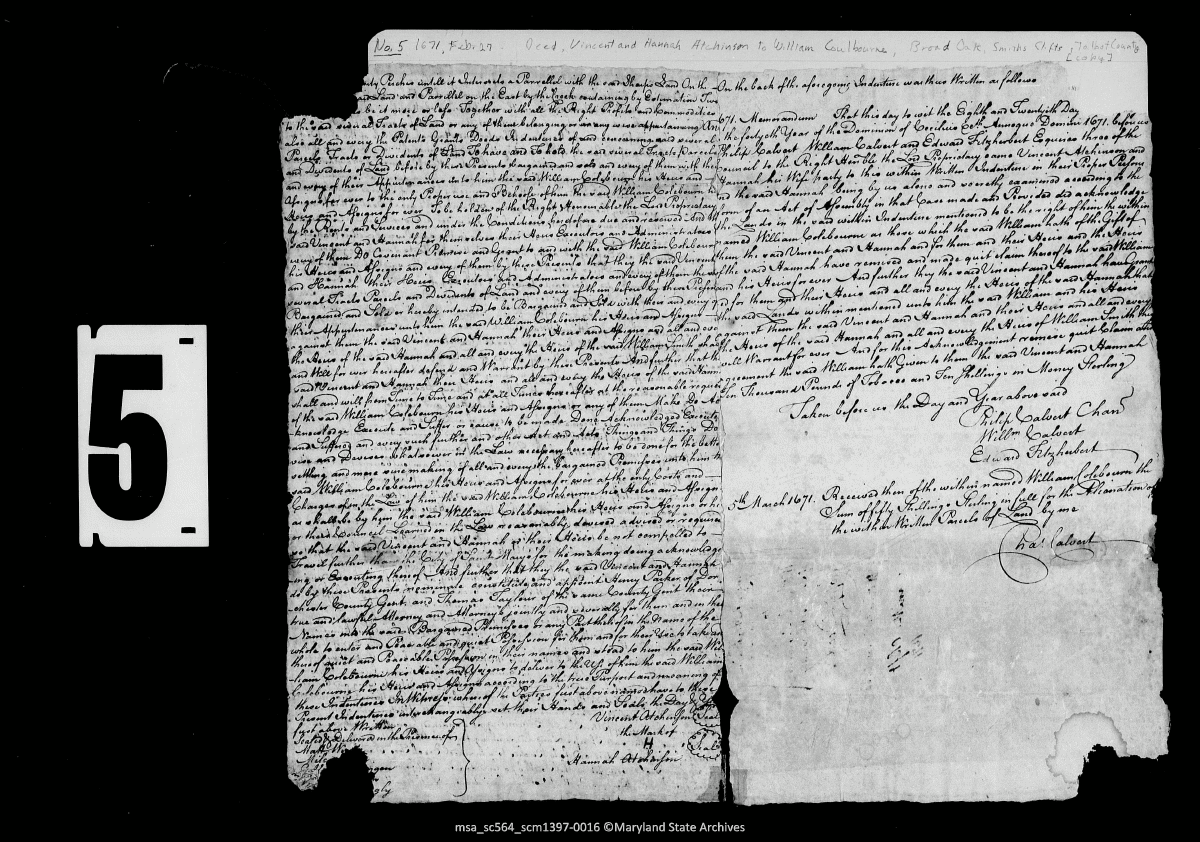 No. 5 1671, Feb. 27 Deed, Vincent and Hannah Atchinson to William Coulbourne, Broad Oak, Smiths Clifts, Talbot County
[copy]
5
Perches untill it Intersects a Parrellel with the said Sharps Land On the
Land and Parrellel on the East by the Creek containing by Estimation Two
be it more or less Together with all the Right Profits and Commodities
to the said several Tracts of Land or any of them belonging or in any wise appertaining And
also all and every the Patents Grants Deeds Indentures
Parcels Tracts or Dividents of Land To have and To hold the said several Tracts Parcels
and Dividents of Land before by these Presents bargained and sold and every of them with their
and every of their Appurtenances unto him the said William Colebourn his Heirs and
Assigns for ever to the only Proper use and Behoofe of him the said William Colebourn his
Heirs and Assigns for ever To be holden of the Right Honourable the Lord Proprietary
by the Rents and Services and under the Conditions heretofore due and reserved And the
said Vincent and Hannah for themselves their Heirs Executors and Administrators
every of them Do Covenant Promise and Grant to and with the said William Colebourn
his Heirs and Assigns and every of them by these Presents that they the said Vincent
and Hannah their Heirs Executors and Administrators and every of them the
several Tracts Parcels and Dividents of Land and every of them before by these Presents
Bargained and Sold or hereby intended to be Bargained and Sold with their and every
their Appurtenances unto him the said William Colebourn his Heirs and Assigns
against them the said Vincent and Hannah their Heirs and Assigns and all and every
the Heirs of the said Hannah and all and every the Heirs of the said William Smith shall
and Will for ever hereafter defend and Warrant by these Presents And further that the
said Vincent and Hannah their Heirs and all and every the Heirs of the said Hannah
shall and will from Time to Time and at all Times hereafter at the reasonable request
of the said William Colebourn his Heirs and Assigns or any of them Make Do Ac
knowledge Execute and Suffer or cause to be made Done Acknowledged Executed
and Suffered and every such further and other Act and Acts Thing and Things De
vise and Devises whatsoever in the Law necessary hereafter to be done for the better
settling and more sure making of all and every the Bargained Premises unto him the
said William Colebourne his Heirs and Assigns for ever at the only Costs and
Charges upon the Law of him the said William Colebourne his Heirs and Assigns
as shall be by him the said William Colebourne his Heirs and Assigns or his
or their Council Learned in the Law reasonably devised advised or required
so that the said Vincent and Hannah or their Heirs be not compelled to
Travil further than the City of Saint Maries for the making doing acknowledg
ing or Executing thereof And further that they the said Vincent and Hannah
do by these Presents constitute and appoint Henry Parker of Dor
chester County Gent. and Thomas Taylour of the same County Gent their
true and lawful Attorney and Attorneys jointly and severally for them and in their
Names into the said Bargained Premises or any Part thereof in the Name of the
whole to enter and Peaceable and quiet Possession for them and for their Use to take and
thereof quiet and Peaceable Possession in their names and stead to him the said Wil
liam Colebourne his Heirs and Assigns to deliver to the Use of him the said William
Colebourne his Heirs and Assigns according to the true Purport and meaning of
these Indentures In Witness whereof the Parties first above named have to these
Present Indentures interchangeably set their Hands and Seals the Day &
first above Written
Sealed & Delivered in the Presence of
Vincent Atchinson Seal
the Mark of
H
Hannah Atchinson Seal
On the back of the aforegoing Indenture was thus Written as follows
1671. Memorandum That this day to wit the Eighth and Twentieth Day
the fortyeth Year of the Dominion of Cecilius &c Annoque Domini 1671. before us
Philip Calvert William Calvert and Edward Fitzherbert Esquires three of the
Council to the Right Honble the Lord Proprietary came Vincent Atchinson and
Hannah his Wife party to this within Written Indenture in their Proper Persons
and the said Hannah being by us alone and secretly examined according to the
form of an Act of Assembly in that Case made and Provided did acknowledge
the Lands in the said within Indenture mentioned to be the right of him the within
named William Colebourne as those which the said William hath of the Gift of
them the said Vincent and Hannah and for them and their Heirs and the Heirs
of the said Hannah have remised and made quit claim thereof to the said William
and his Heirs for ever And further they the said Vincent and Hannah have
for them and their Heirs and all and every the Heirs of the said Hannah that
the said Lands within mentioned unto him the said William and his Heirs
against them the said Vincent and Hannah and their Heirs and all and every
the Heirs of the said Hannah and all and every the Heirs of William Smith
will Warrant for ever And for this Acknowledgement remise quit Claim
agreement the said William hath Given to them the said Vincent and Hannah
Ten Thousand Pounds of Tobacco and Ten Shillings in Money Sterling
Taken before us the Day and Year above said
Philip Calvert Chanr
Willm Calvert
Edward Fitzherbert
5th March 1671. Received then of the within named William Colebourn the
Sum of fifty Shillings Sterling in full for the Alienation of
the within Written Parcels of Land by me
Chas Calvert
msa_sc564_scm1397-0016 ©Maryland State Archives